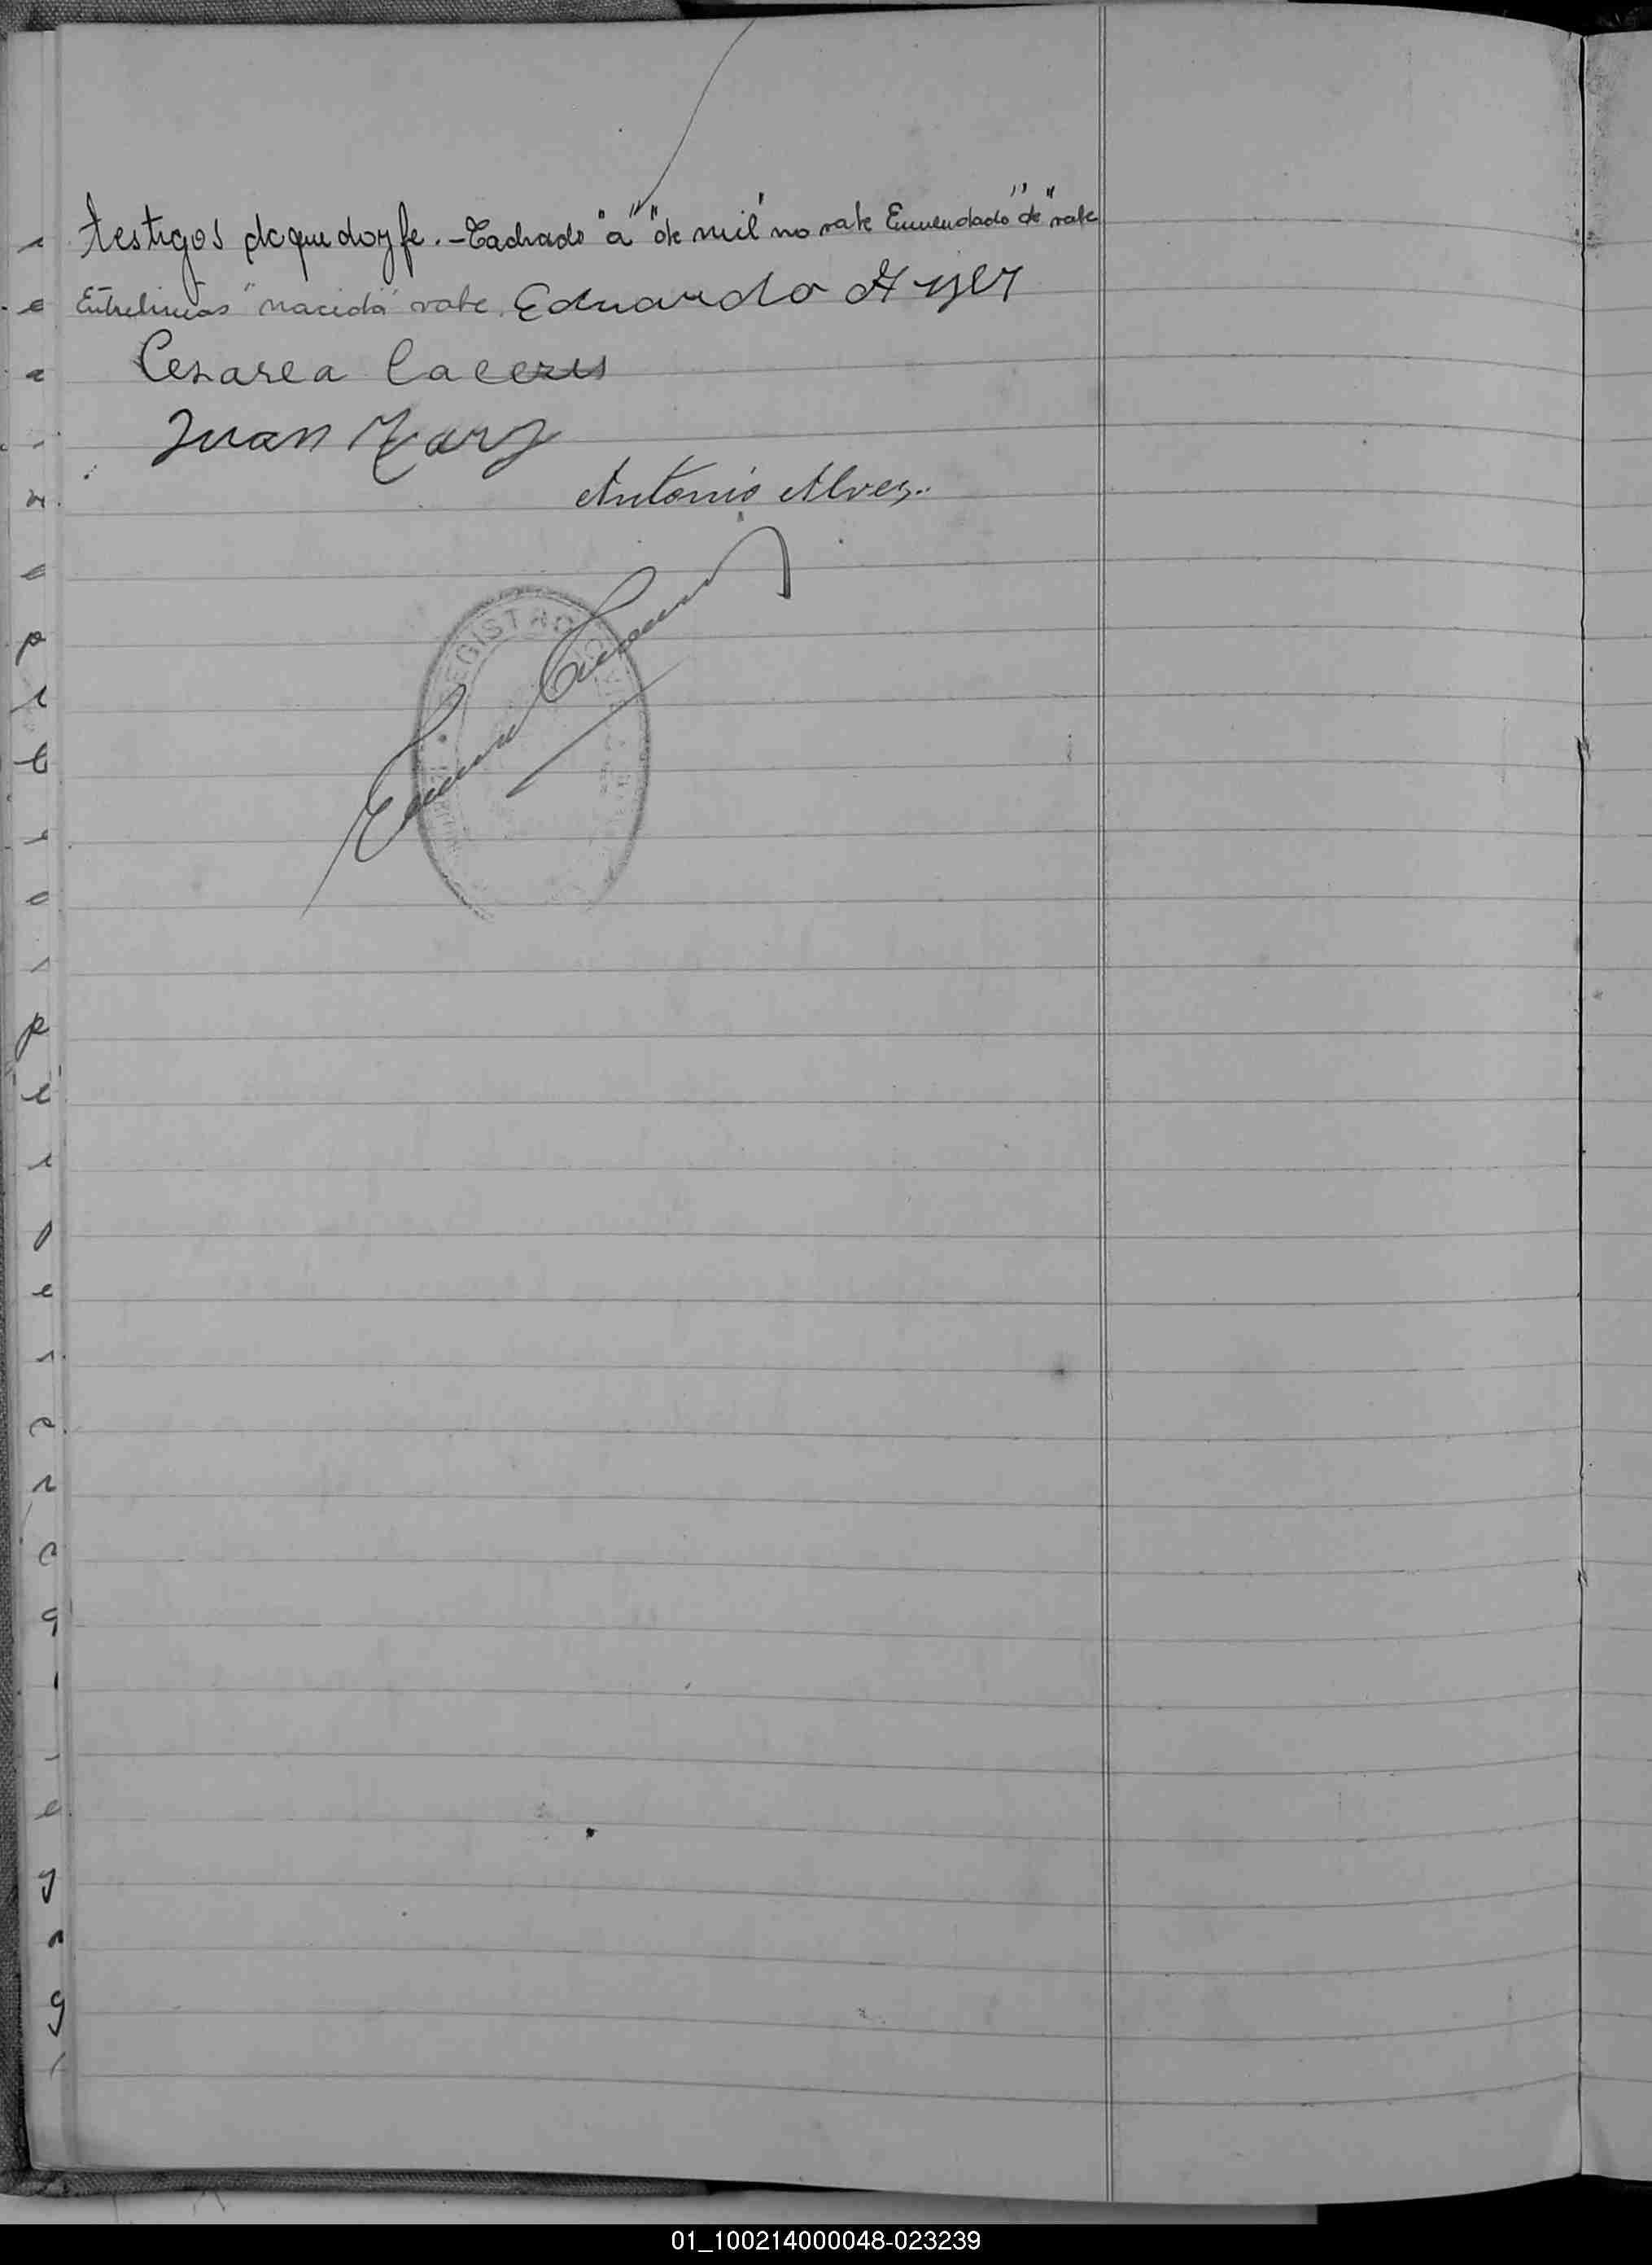 testigos de que doy fe. - Tachado "a" "de mil" no vale Enmendado "de" vale
Entrelineas "nacida" vale. Eduardo
Cesarea Caceres
Juan
Antonio Alves
REGISTRO
01_100214000048-023239